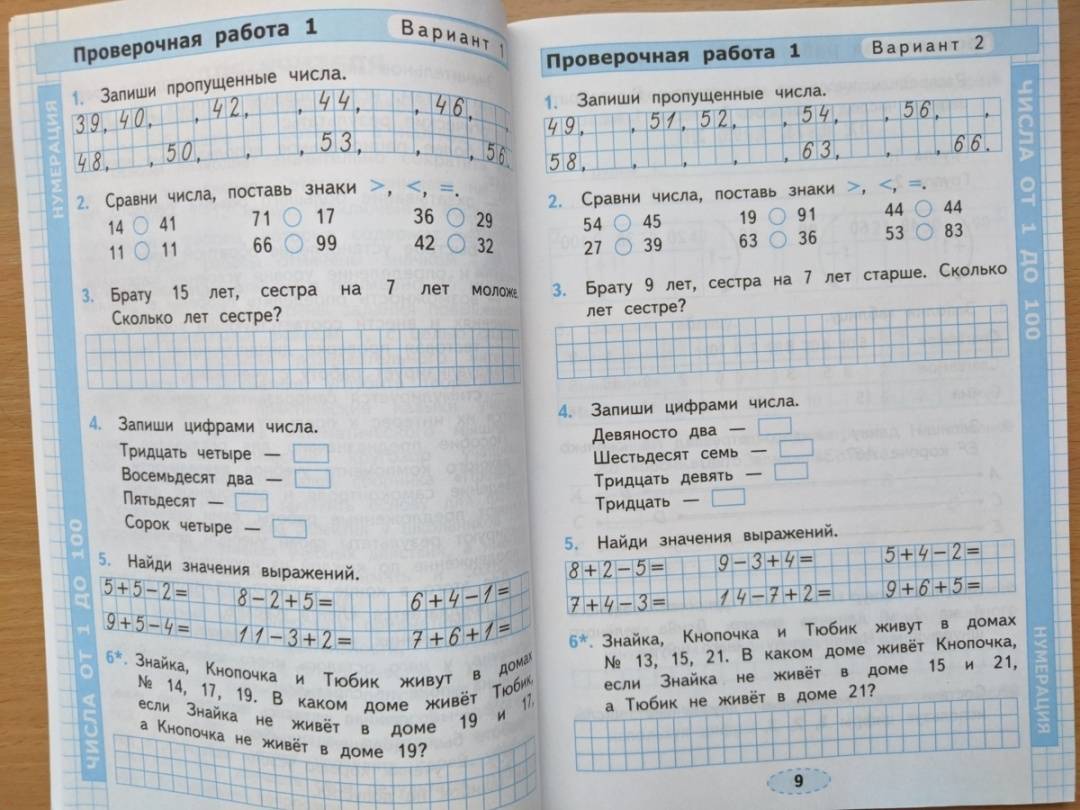 Проверочная работа 1
Вариант 1
НУМЕРАЦИЯ
1. Запиши пропущенные числа.
39, 40, , 42, , 44, , 46, ,
48, , 50, , , 53, , , 56.
2. Сравни числа, поставь знаки >, <, =.
14 ○ 41 71 ○ 17 36 ○ 29
11 ○ 11 66 ○ 99 42 ○ 32
3. Брату 15 лет, сестра на 7 лет моложе.
Сколько лет сестре?
4. Запиши цифрами числа.
Тридцать четыре —
Восемьдесят два —
Пятьдесят —
Сорок четыре —
5. Найди значения выражений.
5+5−2= 8−2+5= 6+4−1=
9+5−4= 11−3+2= 7+6+1=
6*. Знайка, Кнопочка и Тюбик живут в домах
№ 14, 17, 19. В каком доме живёт Тюбик,
если Знайка не живёт в доме 19 и 17,
а Кнопочка не живёт в доме 19?
ЧИСЛА ОТ 1 ДО 100
Проверочная работа 1
Вариант 2
1. Запиши пропущенные числа.
49, , 51, 52, , 54, , 56, ,
58, , , , , 63, , , 66.
2. Сравни числа, поставь знаки >, <, =.
54 ○ 45 19 ○ 91 44 ○ 44
27 ○ 39 63 ○ 36 53 ○ 83
3. Брату 9 лет, сестра на 7 лет старше. Сколько
лет сестре?
4. Запиши цифрами числа.
Девяносто два —
Шестьдесят семь —
Тридцать девять —
Тридцать —
5. Найди значения выражений.
8+2−5= 9−3+4= 5+4−2=
7+4−3= 14−7+2= 9+6+5=
6*. Знайка, Кнопочка и Тюбик живут в домах
№ 13, 15, 21. В каком доме живёт Кнопочка,
если Знайка не живёт в доме 15 и 21,
а Тюбик не живёт в доме 21?
9
ЧИСЛА ОТ 1 ДО 100
НУМЕРАЦИЯ